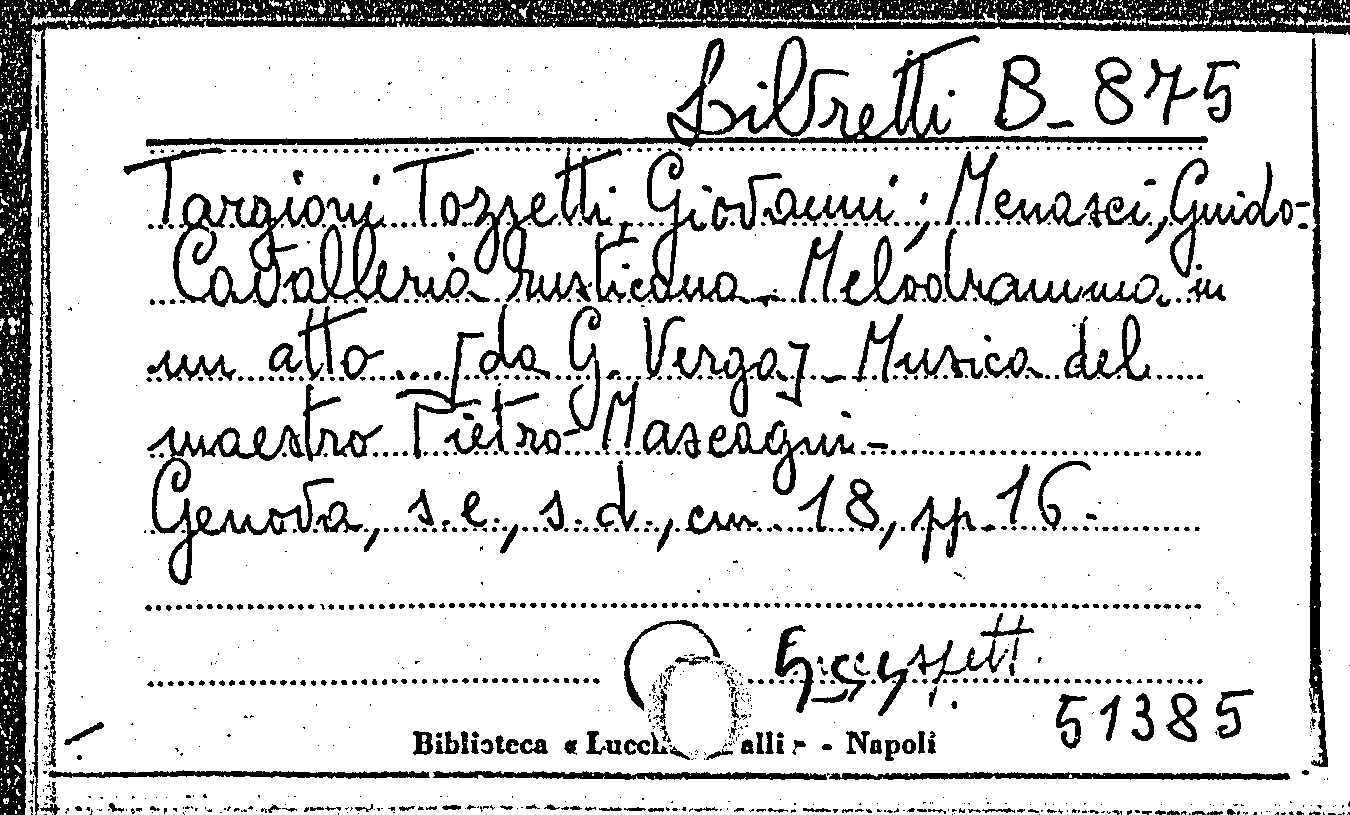 Libretti B-875
Targioni Tozzetti, Giovanni; Menasci, Guido-
Cavalleria rusticana. Melodramma in
un atto ... [da G. Verga] - Musica del
maestro Pietro Mascagni -
Genova, s.e., s.d., cm. 18, pp. 16.
spett.
51385
Biblioteca « Lucch alli » - Napoli